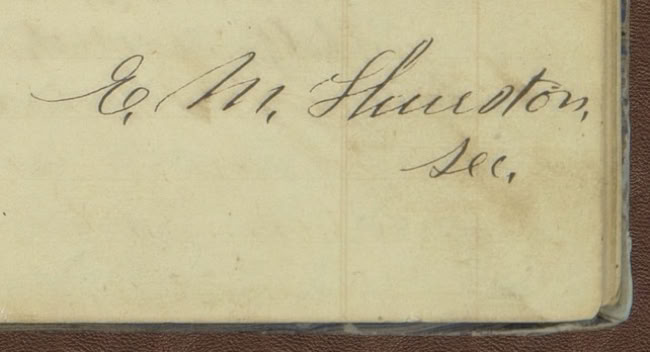 E. M. Thurston,
Sec.